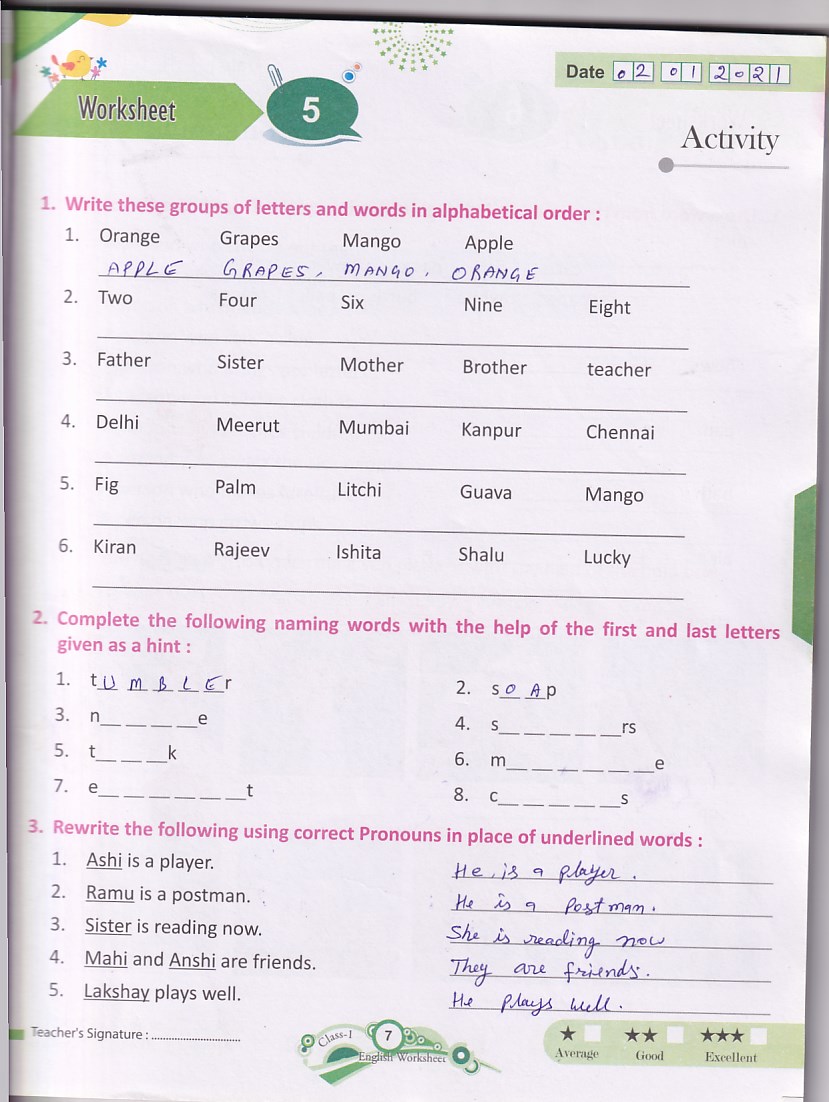 Date 02 01 2021
Worksheet 5
Activity
1. Write these groups of letters and words in alphabetical order :
1. Orange Grapes Mango Apple
APPLE GRAPES, MANGO, ORANGE
2. Two Four Six Nine Eight
3. Father Sister Mother Brother teacher
4. Delhi Meerut Mumbai Kanpur Chennai
5. Fig Palm Litchi Guava Mango
6. Kiran Rajeev Ishita Shalu Lucky
2. Complete the following naming words with the help of the first and last letters
given as a hint :
1. tUMBLEr 2. sOAp
3. n_ _ _ _e 4. s_ _ _ _ _rs
5. t_ _ _k 6. m_ _ _ _ _ _e
7. e_ _ _ _ _ _t 8. c_ _ _ _ _s
3. Rewrite the following using correct Pronouns in place of underlined words :
1. Ashi is a player. He is a player.
2. Ramu is a postman. He is a Postman.
3. Sister is reading now. She is reading now
4. Mahi and Anshi are friends. They are friends.
5. Lakshay plays well. He plays well.
Teacher's Signature : ..............................
Class-1 7 English Worksheet
★ ★★ ★★★
Average Good Excellent